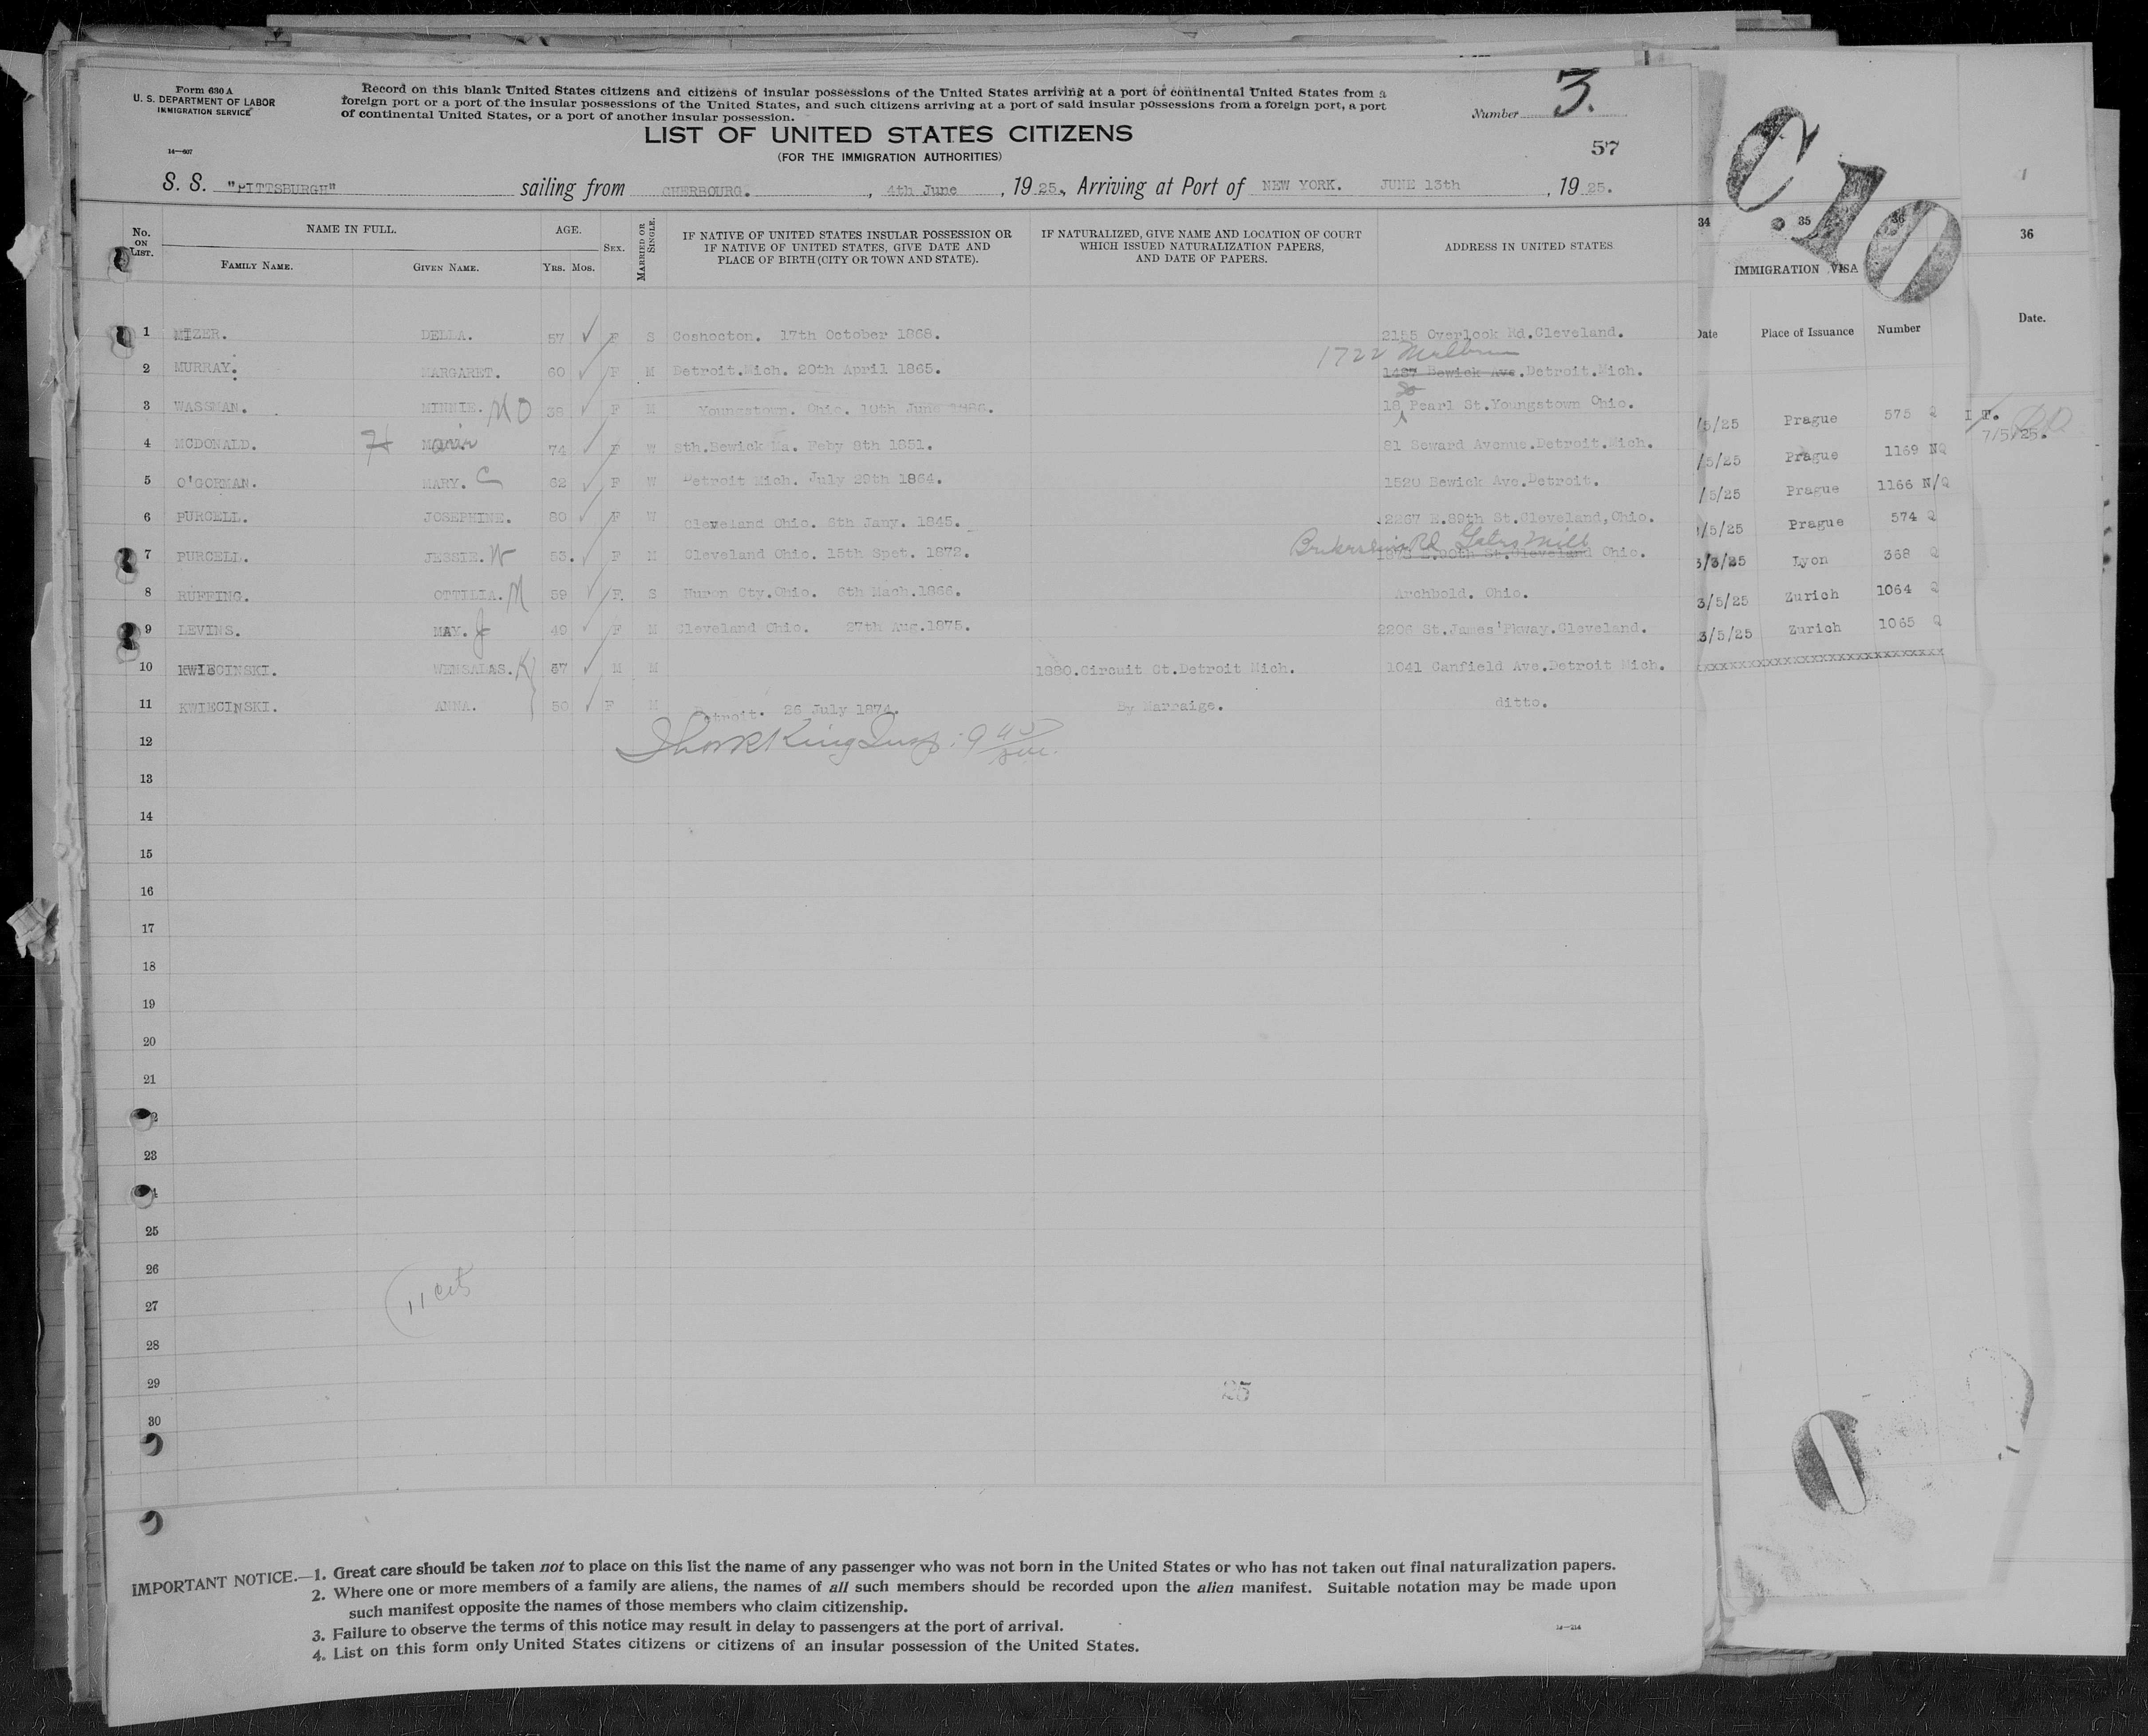 Form 630 A
U. S. DEPARTMENT OF LABOR
IMMIGRATION SERVICE
14—607
Record on this blank United States citizens and citizens of insular possessions of the United States arriving at a port of continental United States from a
foreign port or a port of the insular possessions of the United States, and such citizens arriving at a port of said insular possessions from a foreign port, a port
of continental United States, or a port of another insular possession.
Number 3.
LIST OF UNITED STATES CITIZENS
(FOR THE IMMIGRATION AUTHORITIES)
57
S. S. "PITTSBURGH" sailing from CHERBOURG. , 4th June , 19 25., Arriving at Port of NEW YORK. JUNE 13th , 19 25.
No. ON LIST. NAME IN FULL. FAMILY NAME. GIVEN NAME. AGE. YRS. MOS. SEX. MARRIED OR SINGLE. IF NATIVE OF UNITED STATES INSULAR POSSESSION OR IF NATIVE OF UNITED STATES, GIVE DATE AND PLACE OF BIRTH (CITY OR TOWN AND STATE). IF NATURALIZED, GIVE NAME AND LOCATION OF COURT WHICH ISSUED NATURALIZATION PAPERS, AND DATE OF PAPERS. ADDRESS IN UNITED STATES
1 MIZER. DELLA. 57 ✓ F S Coshocton. 17th October 1868. 2155 Overlook Rd.Cleveland.
1722
2 MURRAY. MARGARET. 60 ✓ F M Detroit.Mich. 20th April 1865. 1487 Bewick Ave.Detroit.Mich.
3 WASSMAN. MINNIE. MO 38 ✓ F M Youngstown. Ohio. 10th June 1886. 18 Pearl St.Youngstown Ohio.
4 MCDONALD. 74 ✓ F W Sth.Bewick Ma. Feby 8th 1851. 81 Seward Avenue.Detroit.Mich.
5 O'GORMAN. MARY. C 62 ✓ F W Detroit Mich. July 29th 1864. 1520 Bewick Ave.Detroit.
6 PURCELL. JOSEPHINE. 80 ✓ F W Cleveland Ohio. 5th Jany. 1845. 2267 E.89th St.Cleveland,Ohio.
7 PURCELL. JESSIE. W 53. ✓ F M Cleveland Ohio. 15th Spet. 1872. E.90th St.Cleveland Ohio.
8 RUFFING. OTTILIA. M 59 ✓ F. S Huron Cty.Ohio. 6th Mach.1866. Archbold. Ohio.
9 LEVINS. MAY. J 49 ✓ F M Cleveland Ohio. 27th Aug.1875. 2206 St.James'Pkway.Cleveland.
10 KWIECINSKI. WENSALAS. K 67 ✓ M M 1880.Circuit Ct.Detroit Mich. 1041 Canfield Ave.Detroit Mich.
11 KWIECINSKI. ANNA. 50 ✓ F M Detroit. 26 July 1874. By Marraige. ditto.
12
13
14
15
16
17
18
19
20
21
23
25
26
27
28
29
30
11 cits
25
C 10
34 35 36
IMMIGRATION VISA
Date Place of Issuance Number
36
Date.
/5/25 Prague 575 Q
7/5/25.
/5/25 Prague 1169 NQ
/5/25 Prague 1166 N/Q
/5/25 Prague 574 Q
3/3/25 Lyon 368 Q
3/5/25 Zurich 1064 Q
3/5/25 Zurich 1065 Q
0
IMPORTANT NOTICE.—1. Great care should be taken not to place on this list the name of any passenger who was not born in the United States or who has not taken out final naturalization papers.
2. Where one or more members of a family are aliens, the names of all such members should be recorded upon the alien manifest. Suitable notation may be made upon
such manifest opposite the names of those members who claim citizenship.
3. Failure to observe the terms of this notice may result in delay to passengers at the port of arrival.
4. List on this form only United States citizens or citizens of an insular possession of the United States.